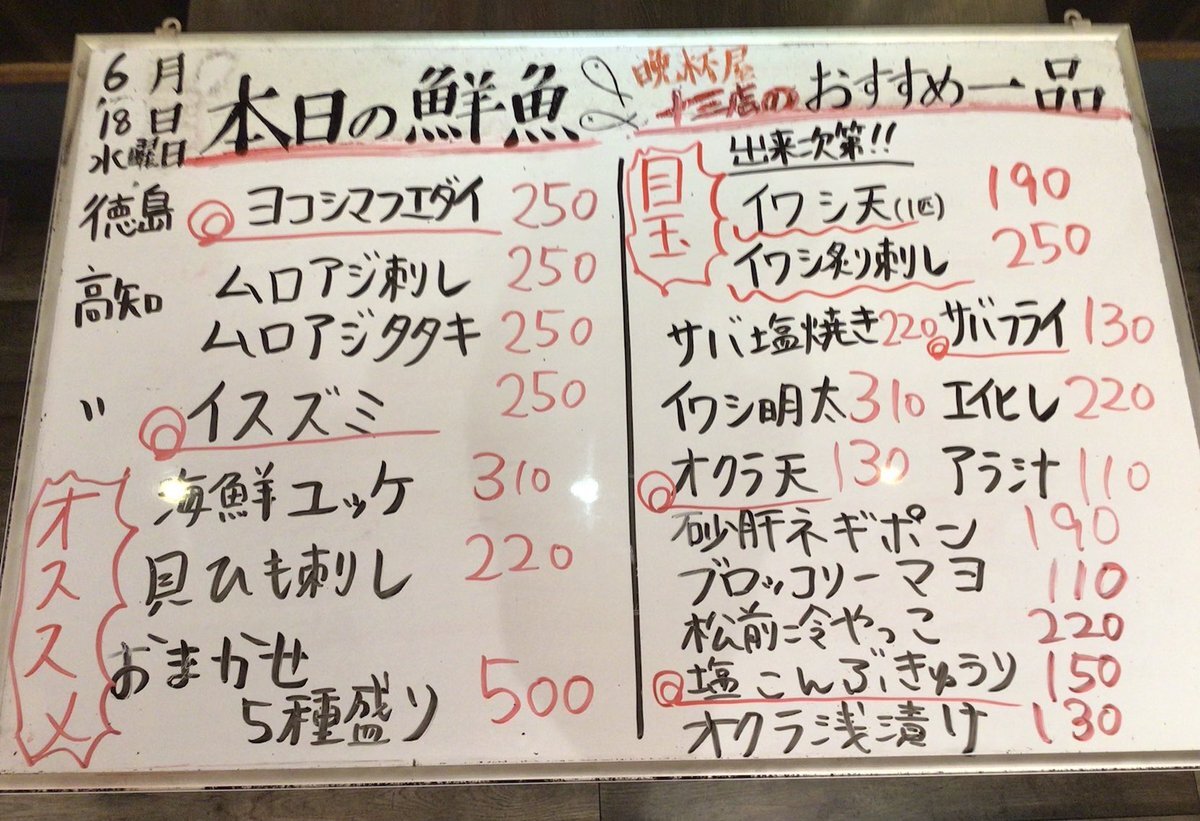 6月
18日
水曜日
本日の鮮魚
徳島 ◎ヨコシマフエダイ 250
高知 ムロアジ刺し 250
ムロアジタタキ 250
〃 ◎イスズミ 250
オススメ
海鮮ユッケ 310
貝ひも刺し 220
おまかせ
5種盛り 500
晩杯屋
十三店のおすすめ一品
目玉
出来次第!!
イワシ天(1匹) 190
イワシ炙り刺し 250
サバ塩焼き 220 ◎サバフライ 130
イワシ明太 310 エイヒレ 220
◎オクラ天 130 アラ汁 110
砂肝ネギポン 190
ブロッコリーマヨ 110
松前冷やっこ 220
◎塩こんぶきゅうり 150
オクラ浅漬け 130